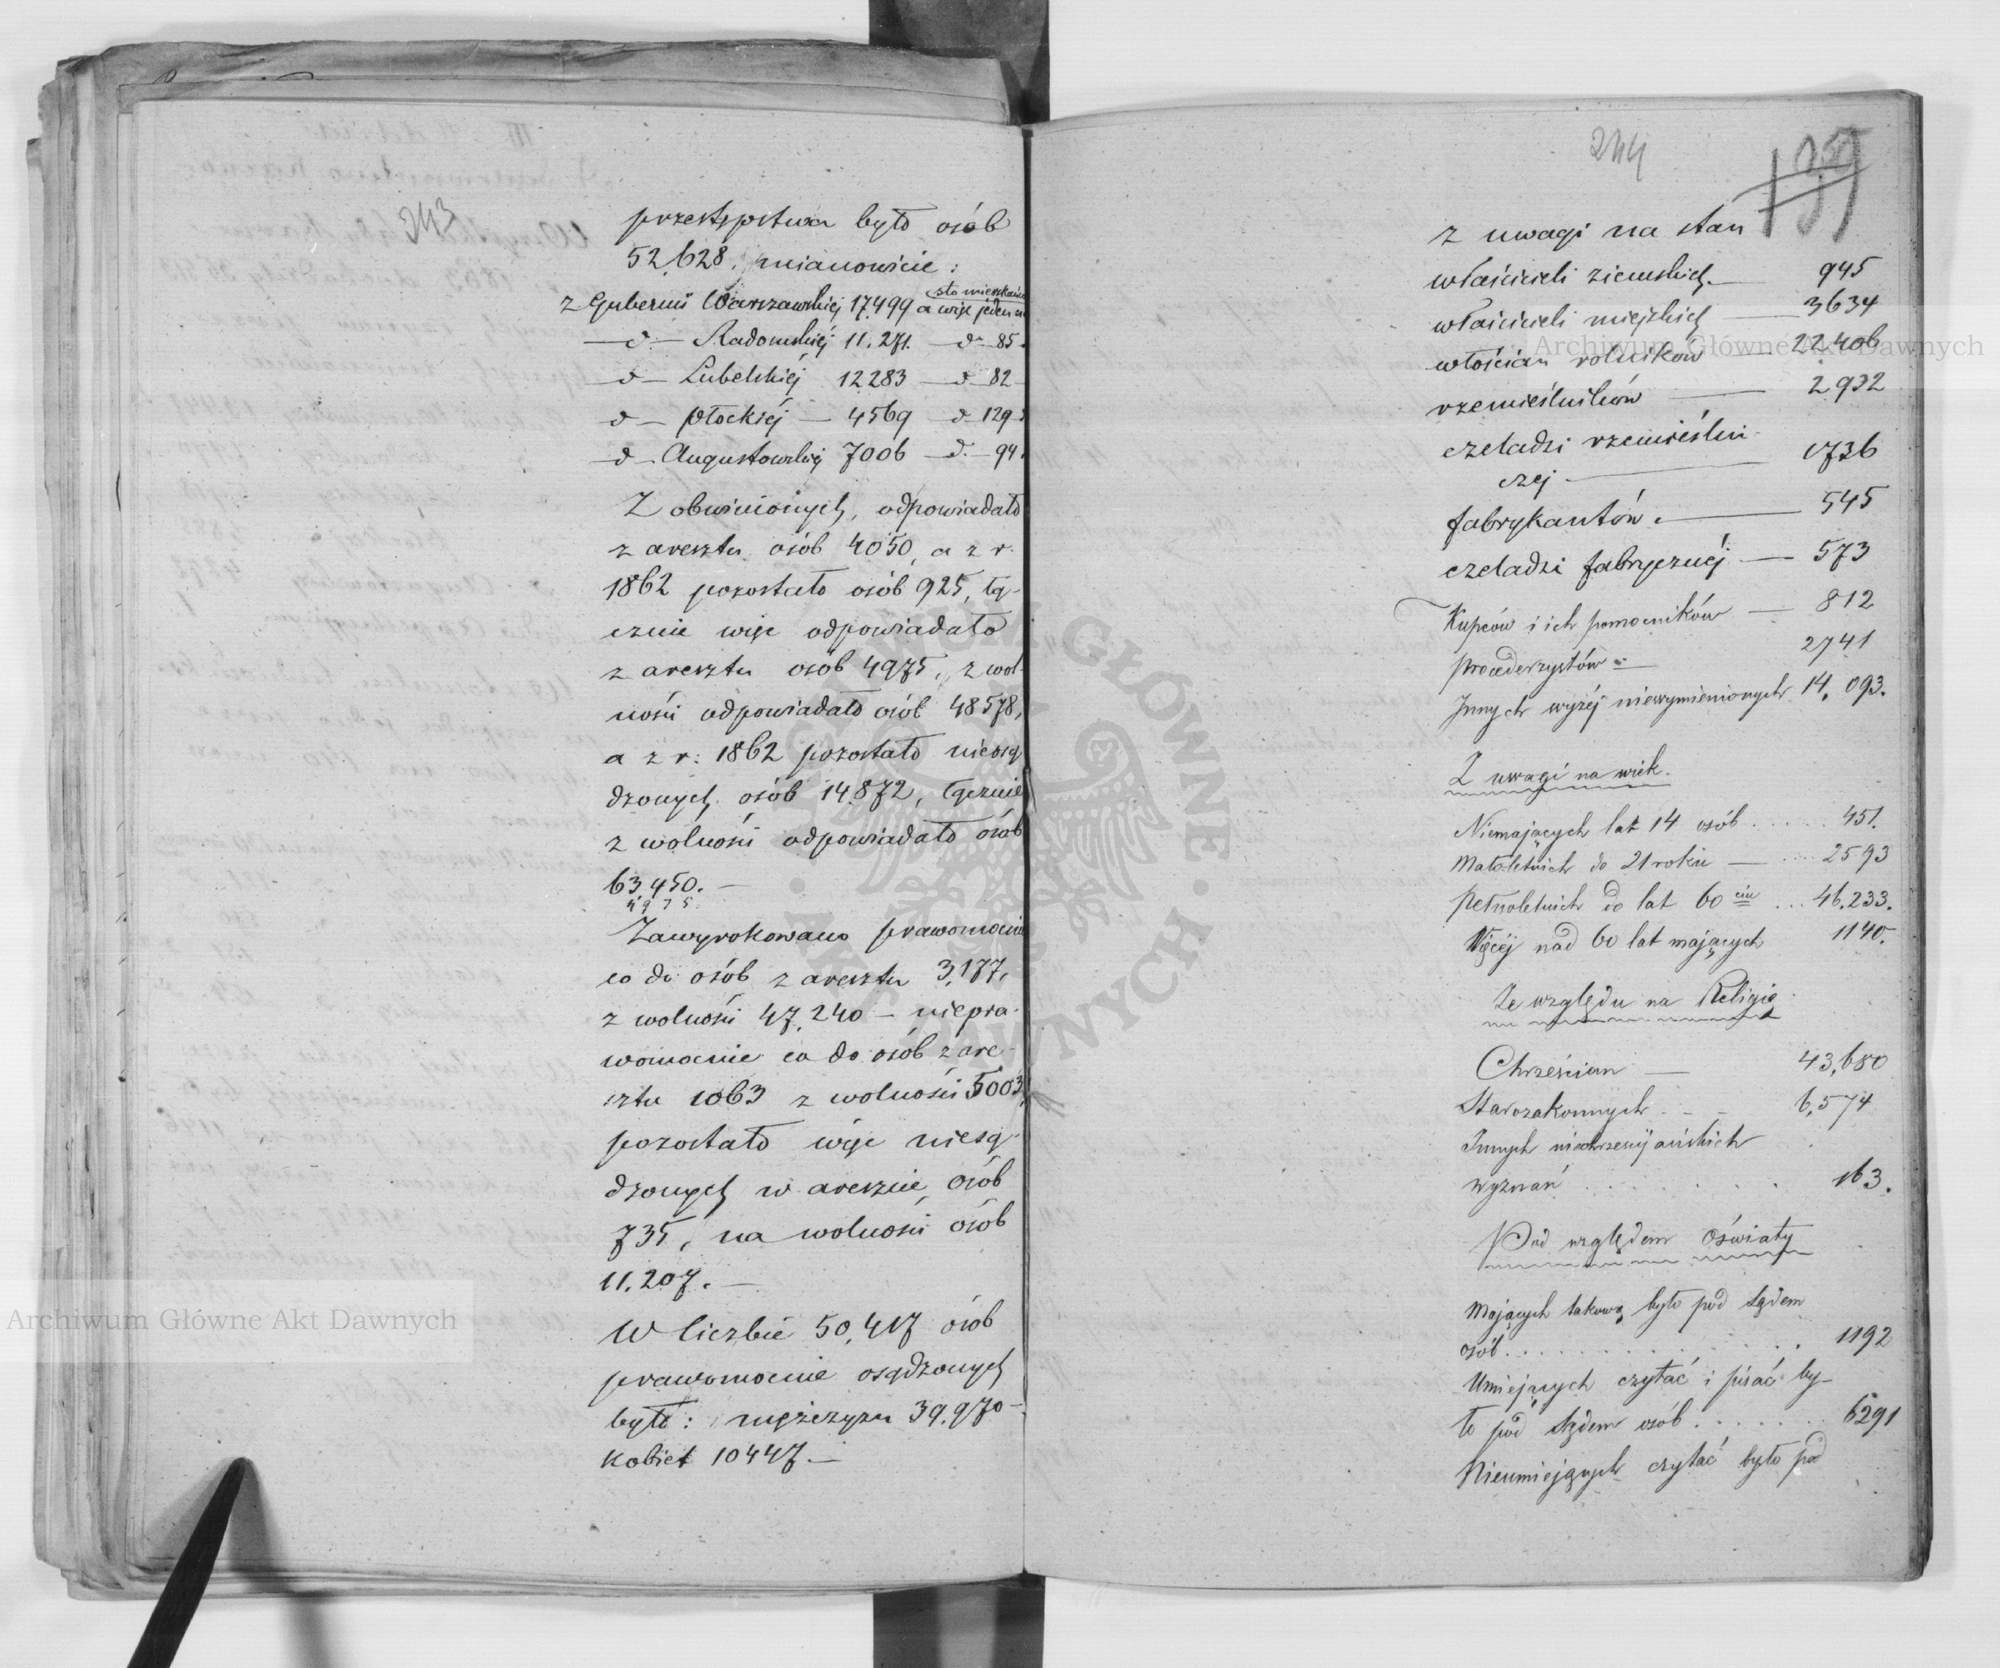 243
przestępstwa było osób
52,628, mianowicie:
sto mieszkańców
z Gubernii Warszawskiej 17,499 a więc jeden na
—d— Radomskiéj 11.271. —d— 85.
—d— Lubelskiéj 12283 —d— 82
d — Płockiéj — 4569 — d — 129
—d—. Augustowskiéj 7006 —d.— 94.
Z obwinionych, odpowiadało
z aresztu osób 4050, a z r.
1862 pozostało osób 925, łą-
cznie więc odpowiadało
z aresztu osób 4975, z wol-
ności odpowiadało osób 48578,
a z r: 1862 pozostało nieosą
dzonych osób 14.872, łącznie
z wolności odpowiadało osób
63.450. —
4975
Zawyrokowano prawomocnie
co do osób z aresztu 3,177,
z wolności 47,240 — niepra-
womocnie co do osób z are-
sztu 1063 z wolności 5003,
pozostało więc niesą-
dzonych w areszcie osób
735, na wolności osób
11.207. —
W liczbie 50,417 osób
prawomocnie osądzonych
było: mężczyzn 39.970 —
Kobiet 10447. —
244
z uwagi na stan
właścicieli ziemskich — 945
właścicieli miejskich — 3634
włościan rolników — 22406
rzemieślników — 2932
czeladzi rzemieślni-
czej — 1736
fabrykantów. — 545
czeladzi fabrycznéj — 573
Kupców i ich pomocników — 812
procederzystów — 2741
Innych wyżéj niewymienionych 14,093.
Z uwagi na wiek.
Niemających lat 14 osób . . . . 451.
Małoletnich do 21 roku — . . . 2593
Pełnoletnich do lat 60 ciu . . . 46.233.
Więcéj nad 60 lat mających 1140.
Ze względu na Religię
Chrześcian — 43,680
Starozakonnych . - - 6,574
Innych niechrześcijańskich
wyznań . . . . . . . 163.
Pod względem oświaty
Mających takową było pod sądem
osób . . . . . . . . . . 1192
Umiejących czytać i pisać by-
ło pod sądem osób . . . . . . 6291
Nieumiejących czytać było pod
Archiwum Główne Akt Dawnych
Archiwum Główne Akt Dawnych